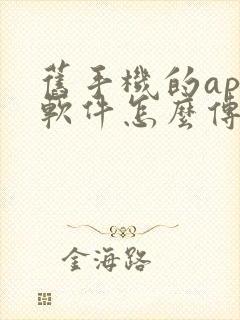 舊手機的ap
軟件怎麼傳
金海路